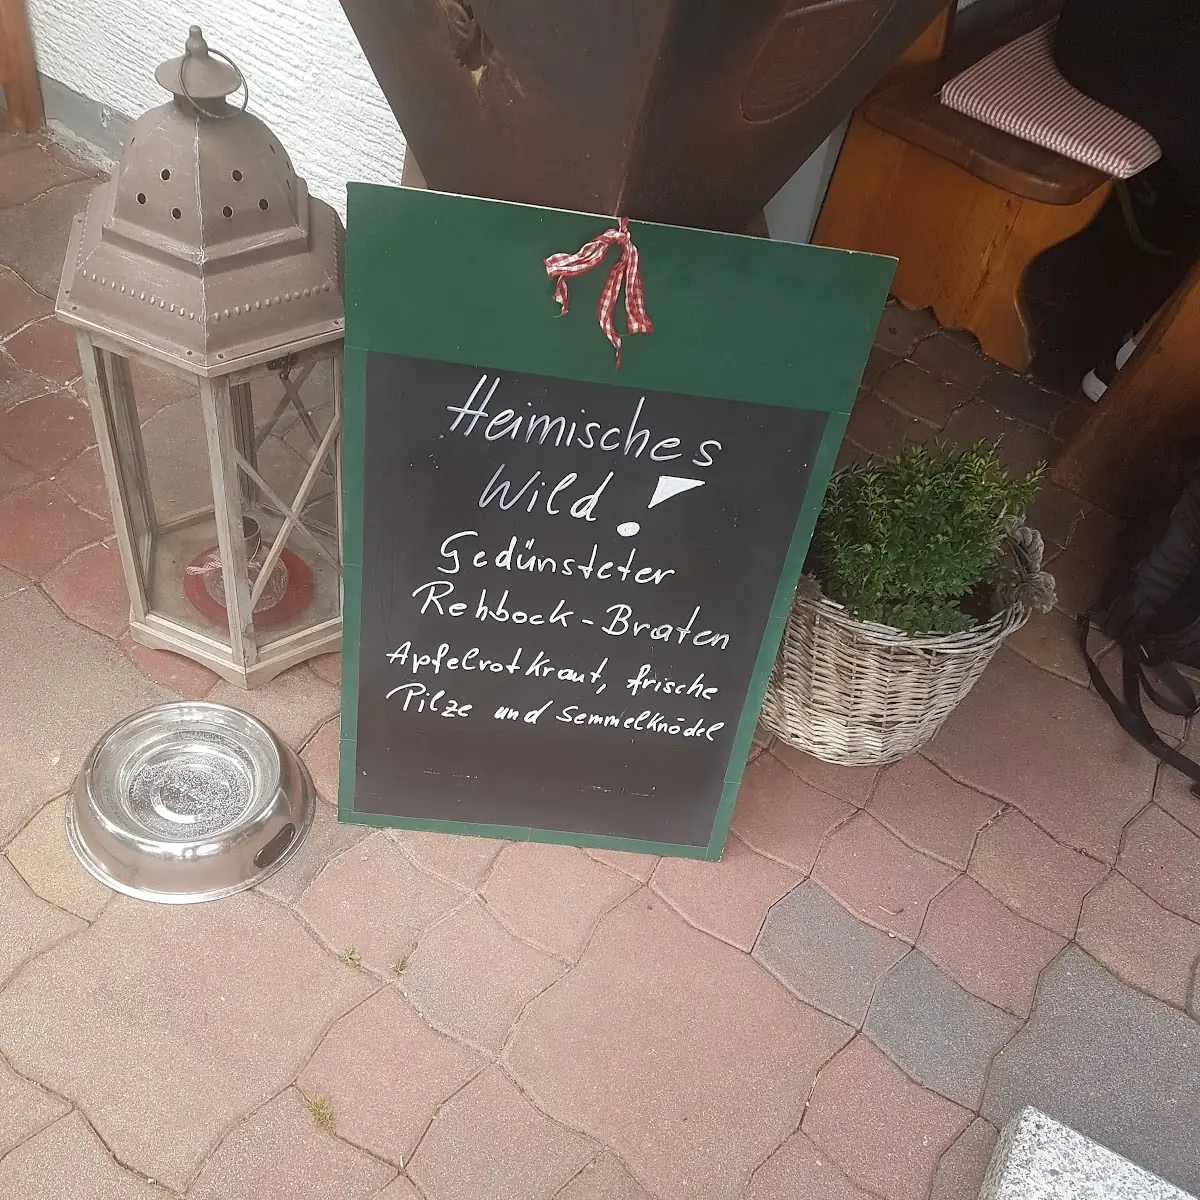 Heimisches
Wild!
Gedünsteter
Rehbock-Braten
Apfelrotkraut, frische
Pilze und Semmelknödel